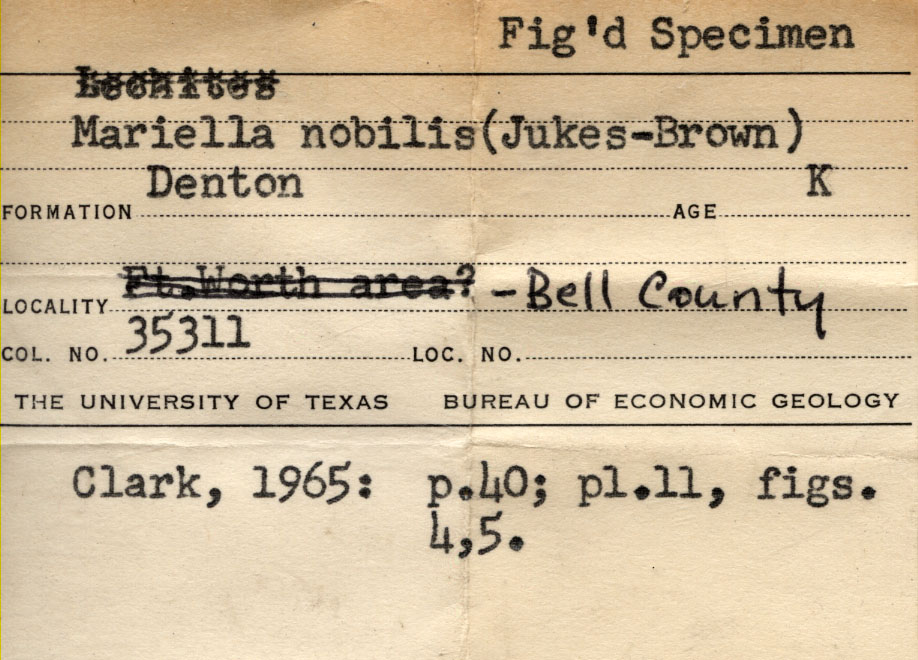 Fig'd Specimen
Mariella nobilis(Jukes-Brown)
Denton K
FORMATION AGE
Ft.Worth area? -Bell County
LOCALITY
35311
COL. NO. LOC. NO.
THE UNIVERSITY OF TEXAS BUREAU OF ECONOMIC GEOLOGY
Clark, 1965: p.40; pl.11, figs.
4,5.